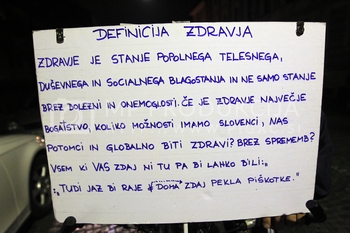 DEFINICIJA ZDRAVJA
ZDRAVJE JE STANJE POPOLNEGA TELESNEGA,
DUŠEVNEGA IN SOCIALNEGA BLAGOSTANJA IN NE SAMO STANJE
BREZ BOLEZNI IN ONEMOGLOSTI. ČE JE ZDRAVJE NAJVEČJE
BOGASTVO, KOLIKO MOŽNOSTI IMAMO SLOVENCI, NAŠ
POTOMCI IN GLOBALNO BITI ZDRAVI? BREZ SPREMEMB?
VSEM KI VAS ZDAJ NI TU PA BI LAHKO BILI:
"TUDI JAZ BI RAJE DOMA ZDAJ PEKLA PIŠKOTKE."